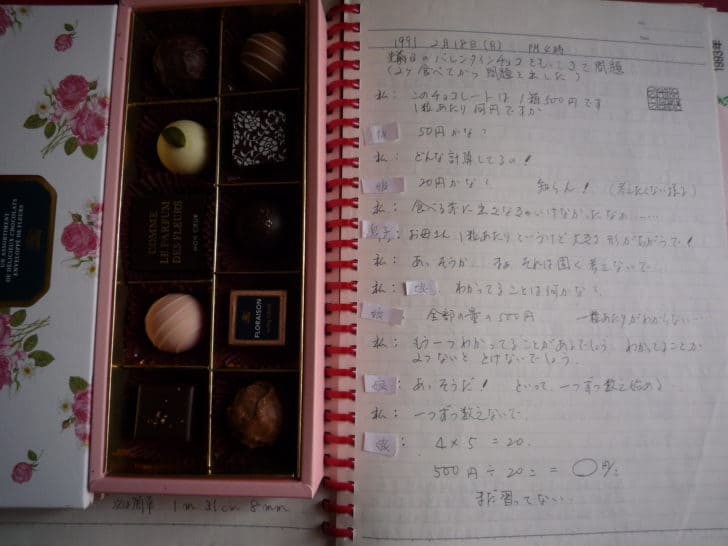 AN ASSORTMENT
OF DELICIEUX CHOCOLATS
ENVELOPPE DE FLEURS
COMME
LE PARFUM
DES FLEURS
MON CŒUR
FLORAISON
1991 2月18日(月) PM 6時
のバレンタインチョコ で問題
(2ケ食べてから問題を出した)
私: このチョコレートは1箱500円です
1粒あたり何円ですか
娘 50円かな?
私: どんな計算してるの!
娘 20円かな! 知らん!
私: 食べる前に
お母さん 1粒あたりというけど大きさ形がちがうで!
私: あっそうか それは固く考えないで
私: 娘 わかってることは何かな?
娘 全部の量の500円 一粒あたりがわからない
私: もう一つわかってることがあるでしょう わかってることが
2つないと とけないでしょう
娘: あっそうだ! といって一つずつ数え始める
私: 一つずつ数えないで
娘: 4×5=20.
500円÷20こ=○円/こ
まだ習ってない
1m 31cm 8mm